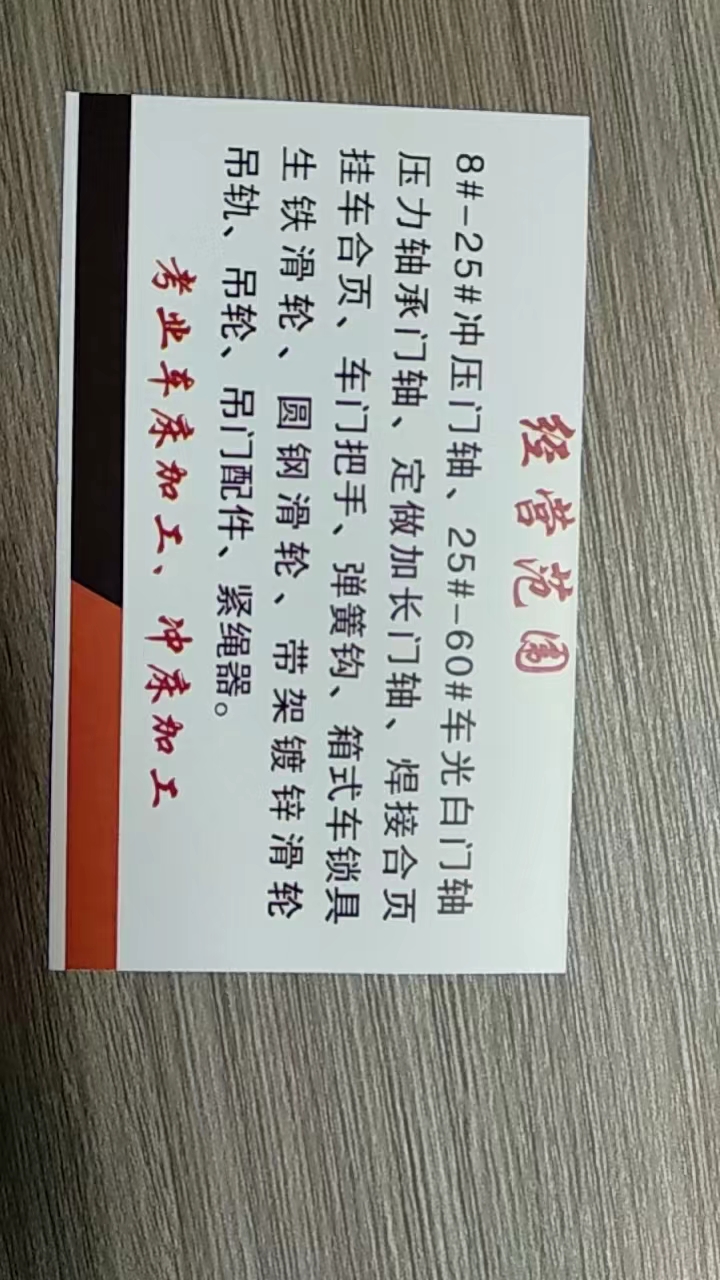 经营范围
8#-25#冲压门轴、25#-60#车光白门轴
压力轴承门轴、定做加长门轴、焊接合页
挂车合页、车门把手、弹簧钩、箱式车锁具
生铁滑轮、圆钢滑轮、带架镀锌滑轮
吊轨、吊轮、吊门配件、紧绳器。
专业车床加工、冲床加工